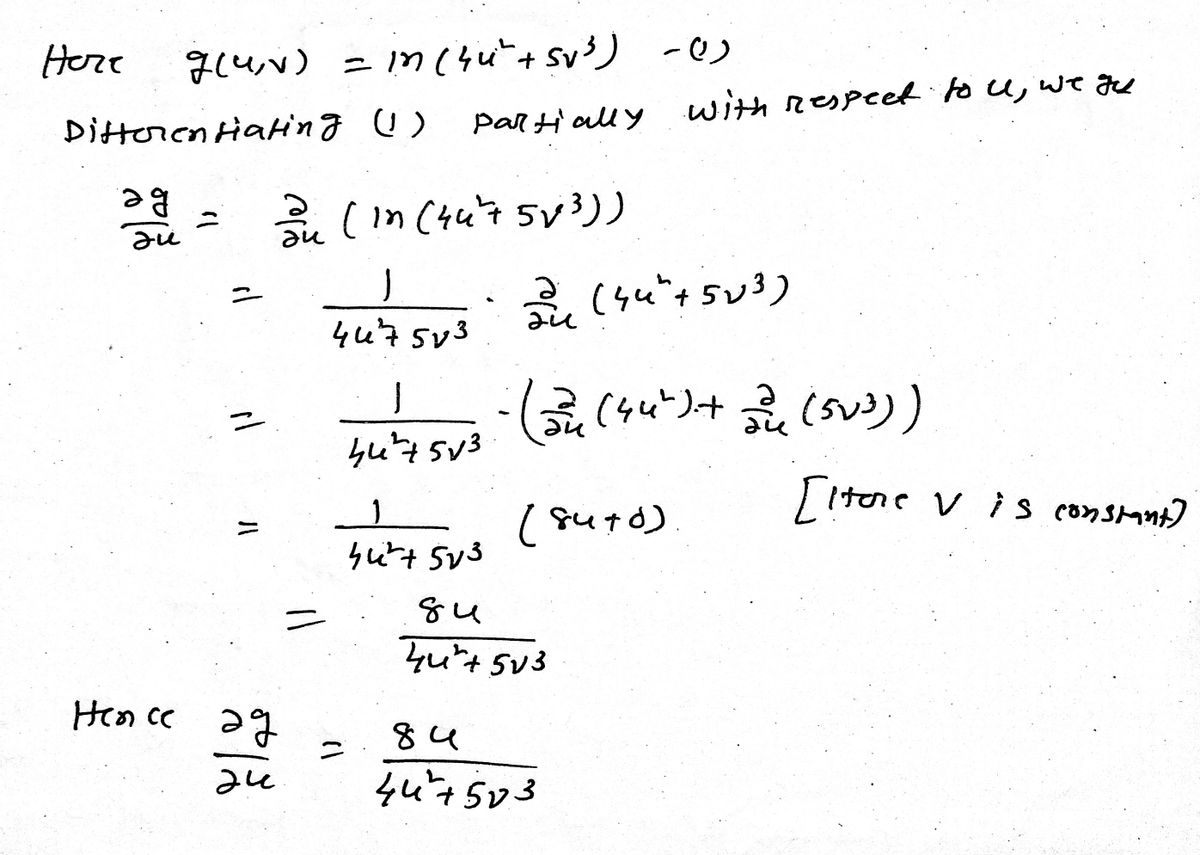 Here g(u,v) = ln(4u²+5v³) -(1)
Differentiating (1) partially with respect to u, we get
∂g/∂u = ∂/∂u (ln(4u²+5v³))
= 1/(4u²+5v³) · ∂/∂u (4u²+5v³)
= 1/(4u²+5v³) · (∂/∂u (4u²)+ ∂/∂u (5v³))
= 1/(4u²+5v³) (8u+0) [Here v is constant]
= 8u/(4u²+5v³)
Hence ∂g/∂u = 8u/(4u²+5v³)